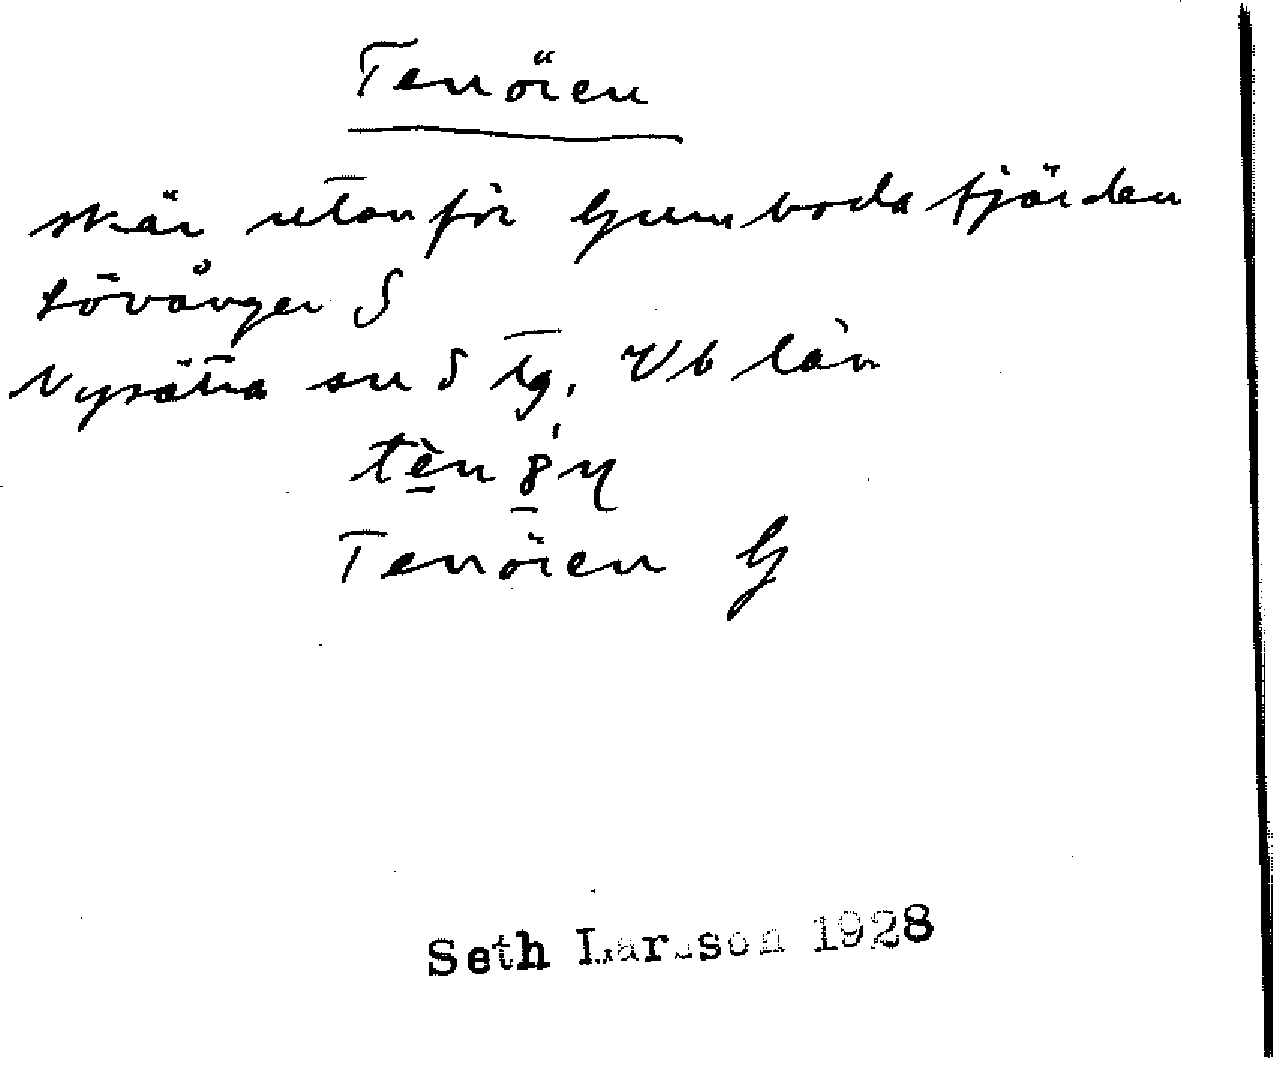 Tenören
skär utanför Gumbodafjärden
Lövånger S
Nysätra sn S tg. Vb län
Tenören G
Seth Larsson 1928